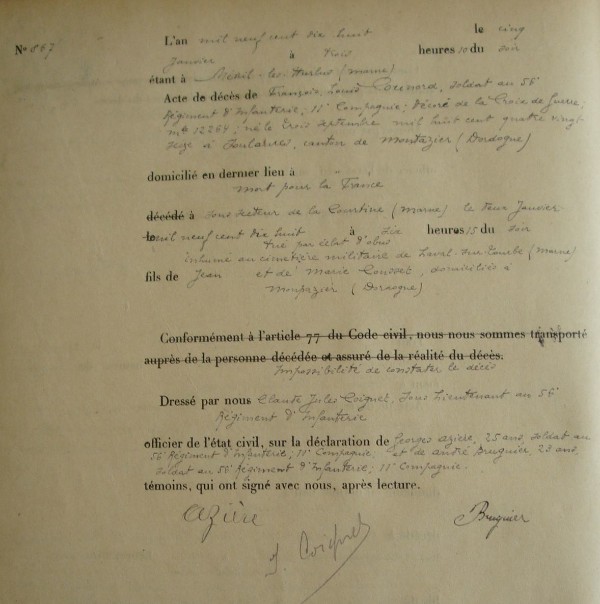 L'an mil neuf cent dix huit le cinq
No 867
janvier à trois heures 10 du soir
étant à Mesnil-les-Hurlus (marne)
Acte de décès de François, Louis soldat au 56e
Régiment d'Infanterie, 11e Compagnie; décoré de la Croix de Guerre;
mle 12264; né le trois septembre mil huit cent quatre vingt
seize à canton de (Dordogne)
domicilié en dernier lieu à
mort pour la France
décédé à sous secteur de la Courtine (marne) le deux Janvier
le mil neuf cent dix huit à six heures 15 du soir
tué par éclat d'obus
inhumé au cimetière militaire de Laval-sur-Tourbe (Marne)
fils de Jean et de Marie domiciliés à
Monpazier (Dordogne)
Conformément à l'article 77 du Code civil, nous nous sommes transporté
auprès de la personne décédée et assuré de la réalité du décès.
Impossibilité de constater le décès
Dressé par nous Claude Jules Coignet, Sous Lieutenant au 56e
Régiment d'Infanterie
officier de l'état civil, sur la déclaration de Georges Azière, 25 ans, soldat au
56e Régiment d'Infanterie; 11e Compagnie; et de André Brugnier, 23 ans,
soldat au 56e Régiment d'Infanterie; 11e Compagnie.
témoins, qui ont signé avec nous, après lecture.
Azière Brugnier
J. Coignet